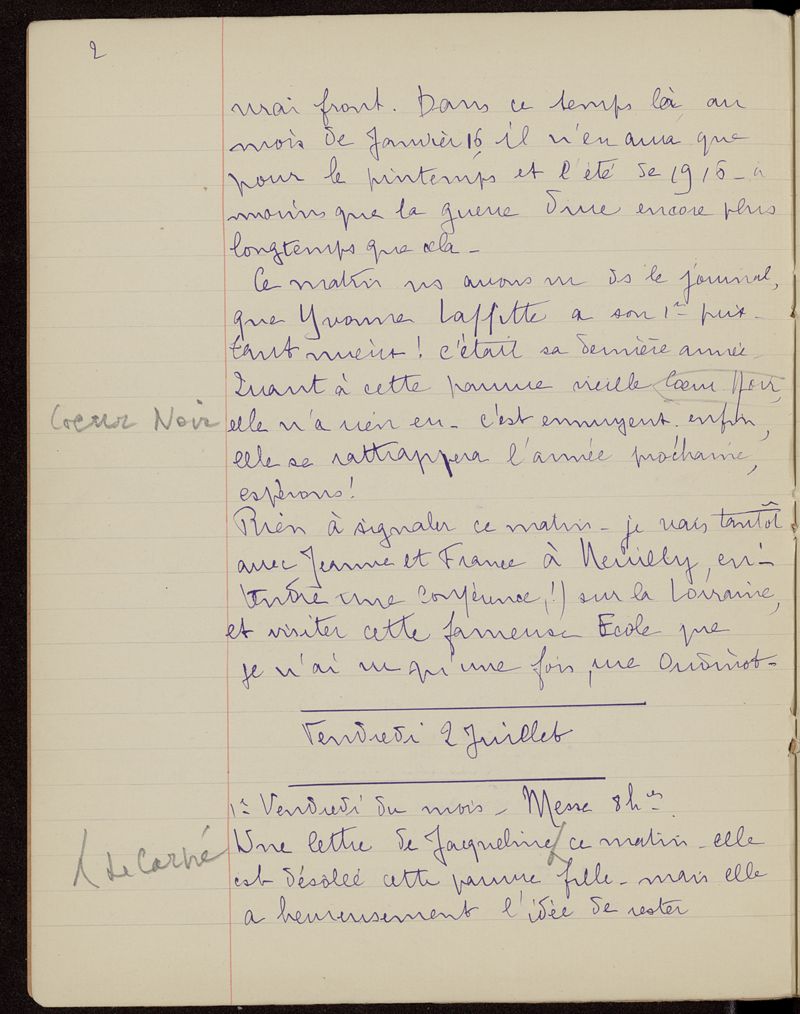 2
vrai front. Dans ce temps là, au
mois de Janvier 16, il n'en aura que
pour le printemps et l'été de 1916 - à
moins que la guerre dure encore plus
longtemps que cela -
Ce matin ns avons vu ds le journal,
que Yvonne Laffitte a son 1er prix -
tant mieux! c'était sa dernière année
Quant à cette pauvre vieille Coeur Noir,
Coeur Noir
elle n'a rien eu - c'est ennuyent. enfin,
elle se rattrappera l'année prochaine,
espérons!
Rien à signaler ce matin - je vais tantôt
avec Jeanne et France à Neuilly, en-
tendre une conférence, (!) sur la Lorraine,
et visiter cette fameuse Ecole que
je n'ai vu qu'une fois, rue Oudinot -
Vendredi 2 Juillet
1er Vendredi du mois - Messe 8 hes.
Une lettre de Jacqueline ce matin - elle
( de Carné
est désolée cette pauvre fille - mais elle
a heureusement l'idée de rester